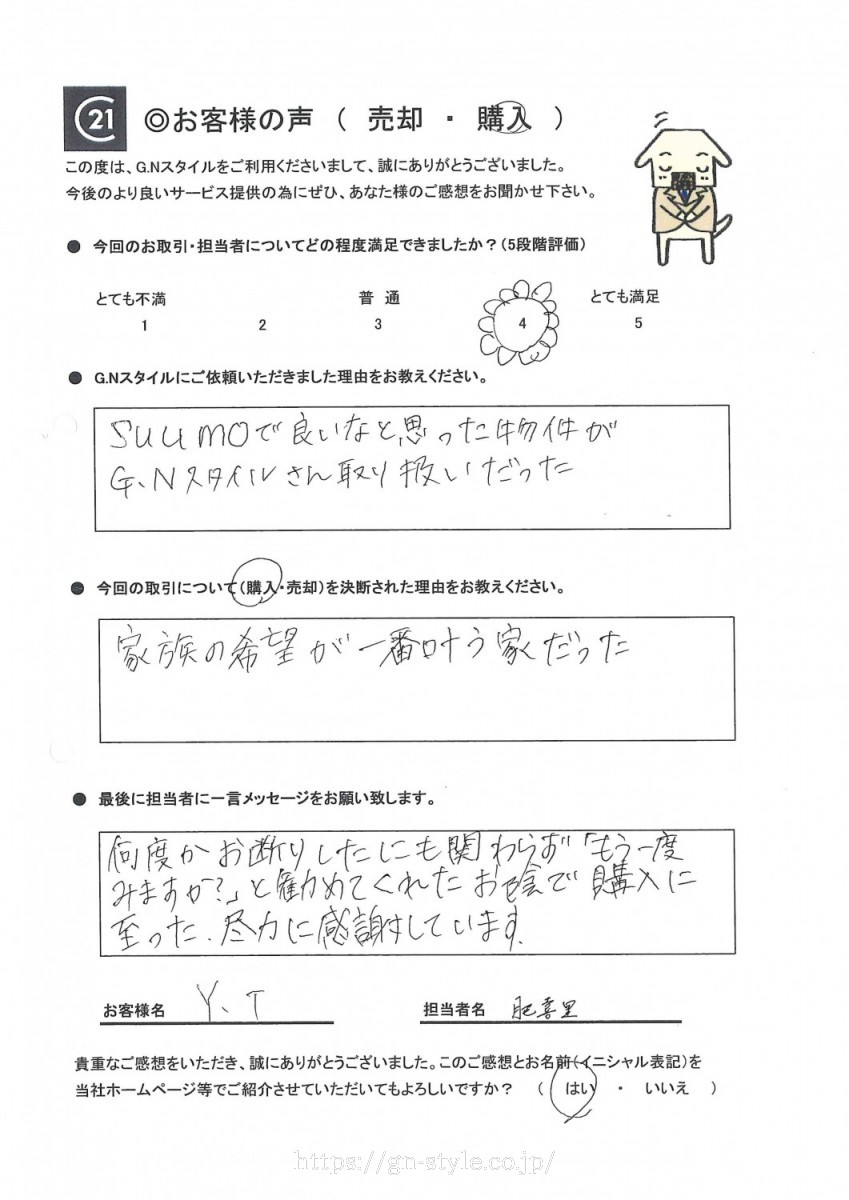 C21
◎お客様の声 ( 売却 ・ 購入 )
この度は、G.Nスタイルをご利用くださいまして、誠にありがとうございました。
今後のより良いサービス提供の為にぜひ、あなた様のご感想をお聞かせ下さい。
● 今回のお取引・担当者についてどの程度満足できましたか?(5段階評価)
とても不満 普 通 とても満足
1 2 3 4 5
● G.Nスタイルにご依頼いただきました理由をお教えください。
SUUMOで良いなと思った物件が
G.Nスタイルさん取り扱いだった
● 今回の取引について(購入・売却)を決断された理由をお教えください。
家族の希望が一番叶う家だった
● 最後に担当者に一言メッセージをお願い致します。
何度かお断りしたにも関わらず「もう一度
みますか?」と勧めてくれたお陰で購入に
至った.尽力に感謝しています.
お客様名 Y.T 担当者名 肥喜里
貴重なご感想をいただき、誠にありがとうございました。このご感想とお名前(イニシャル表記)を
当社ホームページ等でご紹介させていただいてもよろしいですか? ( はい ・ いいえ )
https://gn-style.co.jp/